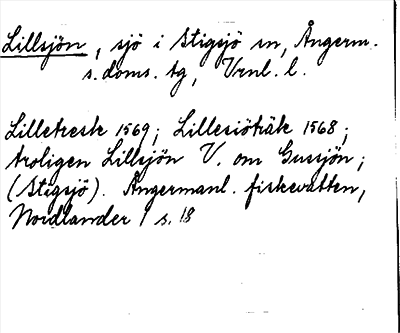 Lillsjön, sjö i Stigsjö sn, Ångerm.
s. doms. tg, Vrnl. l.
Lilletresk 1569; Lillesiöträk 1568;
troligen Lillsjön V. om Gussjön;
(Stigsjö). Ångermanl. fiskevatten,
Nordlander 1 s. 18